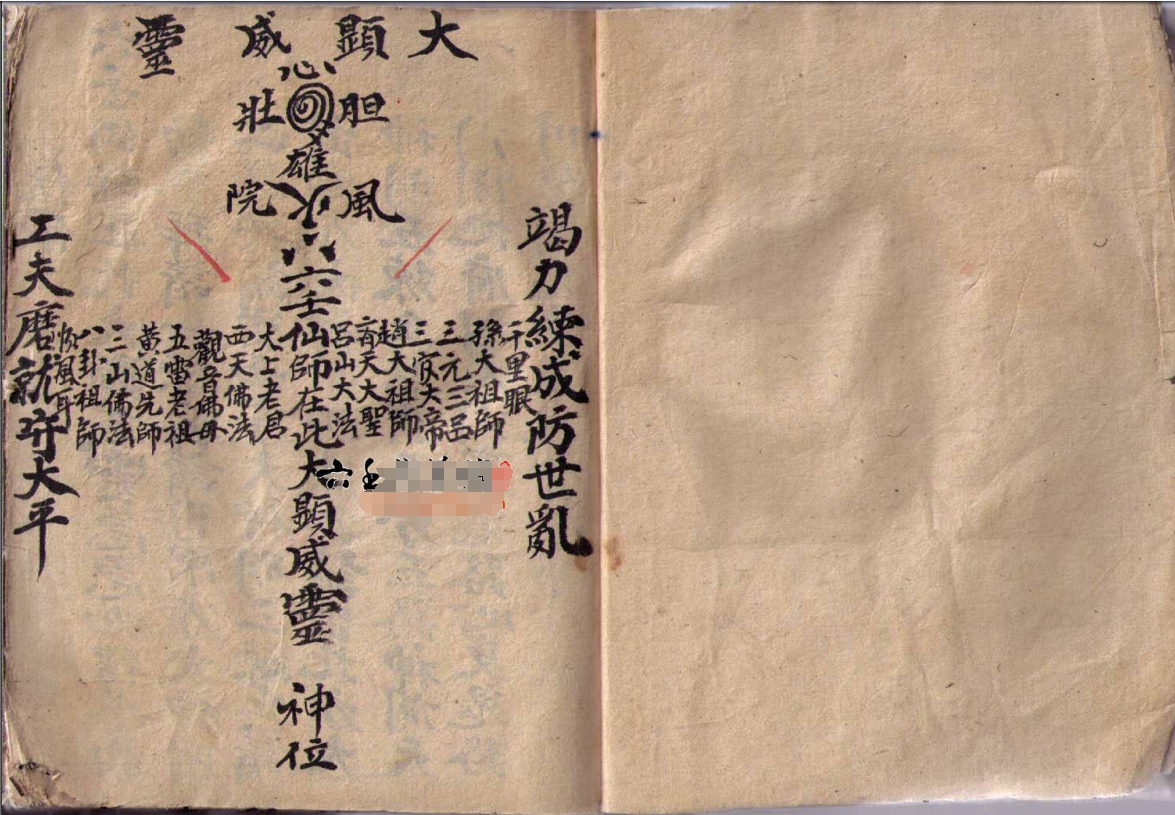 大顯威靈
心
胆壯
雄
風院
竭力練成防世亂
千里眼
孫大祖師
三元三呂
三官大帝
趙大祖師
斉天大聖
呂山大法
六壬仙師在此大顯威靈 神位
大上老君
西天佛法
觀音佛母
五雷老祖
黃道先師
三山佛法
八卦祖師
順風耳
工夫磨就守大平
六壬